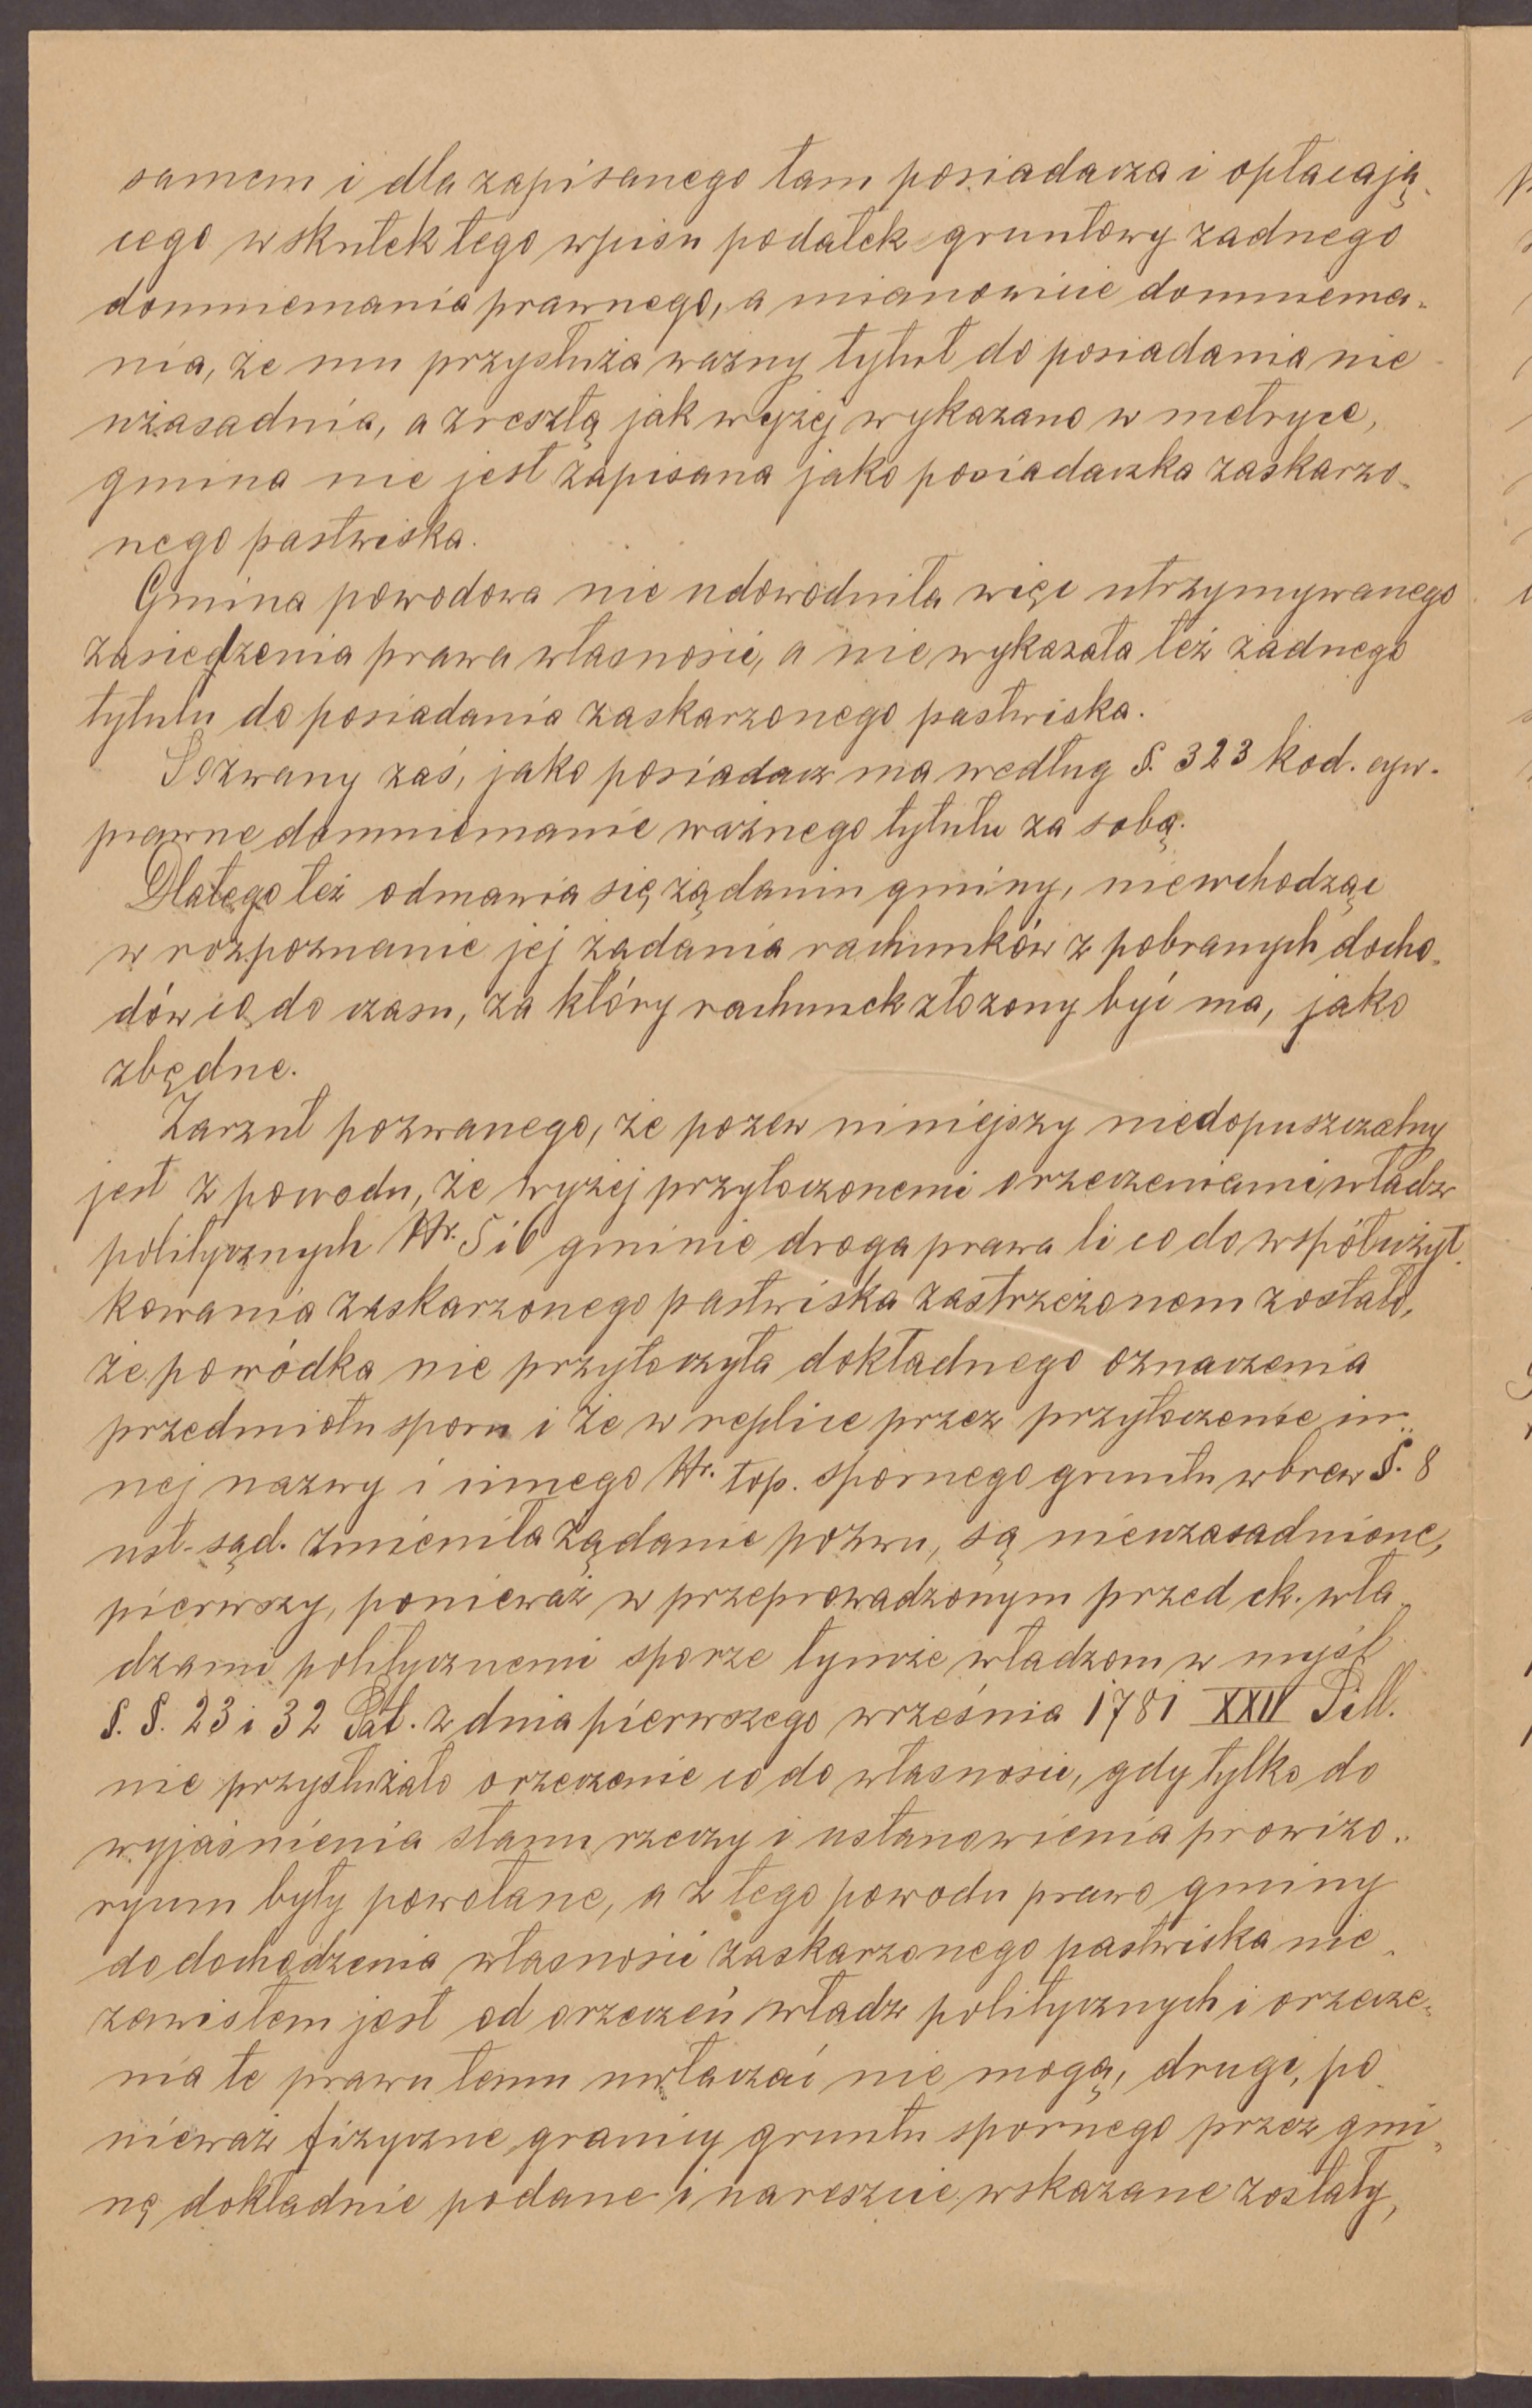 samem i dla zapisanego tam posiadacza i opłacają-
cego wskutek tego wpisu podatek gruntowy żadnego
domniemania prawnego, a mianowicie domniema-
nia, że mu przysłuża ważny tytuł do posiadania nie
uzasadnia, a zresztą jak wyżej wykazano w metryce,
gmina nie jest zapisana jako posiadaczka zaskarżo-
nego pastwiska.
Gmina powodowa nie udowodniła więc utrzymywanego
zasiedzenia prawa własności, a nie wykazała też żadnego
tytułu do posiadania zaskarżonego pastwiska.
Pozwany zaś, jako posiadacz ma według §. 323 kod. cyw.
prawne domniemanie ważnego tytułu za sobą.
Dlatego też odmawia się żądaniu gminy, niewchodząc
w rozpoznanie jej żądania rachunków z pobranych docho-
dów co do czasu, za który rachunek złożony być ma, jako
zbędne.
Zarzut pozwanego, że pozew niniejszy niedopuszczalny
jest z powodu, że wyżej przytoczonemi orzeczeniami władz
politycznych Nr. 5 i 6 gminie droga prawa li co do współużyt-
kowania zaskarżonego pastwiska zastrzeżonem zostało,
że powódka nie przytoczyła dokładnego oznaczenia
przedmiotu sporu i że w replice przez przytoczenie in-
nej nazwy i innego Nr. top. spornego gruntu wbrew §. 8
ust. sąd. zmieniła żądanie pozwu, są nieuzasadnione,
pierwszy, ponieważ w przeprowadzonym przed ck. wła-
dzami politycznemi sporze tymże władzom w myśl
§. §. 23 i 32 Pat. z dnia pierwszego września 1781 XXII Pill.
nie przysłużało orzeczenie co do własności, gdy tylko do
wyjaśnienia stanu rzeczy i ustanowienia prowizo-
ryum były powołane, a z tego powodu prawo gminy
do dochodzenia własności zaskarżonego pastwiska nie-
zawisłem jest od orzeczeń władz politycznych i orzecze-
nia te prawu temu uwłaczać nie mogą, drugi, po-
nieważ fizyczne granicy gruntu spornego przez gmi-
nę dokładnie podane i nareszcie wskazane zostały,